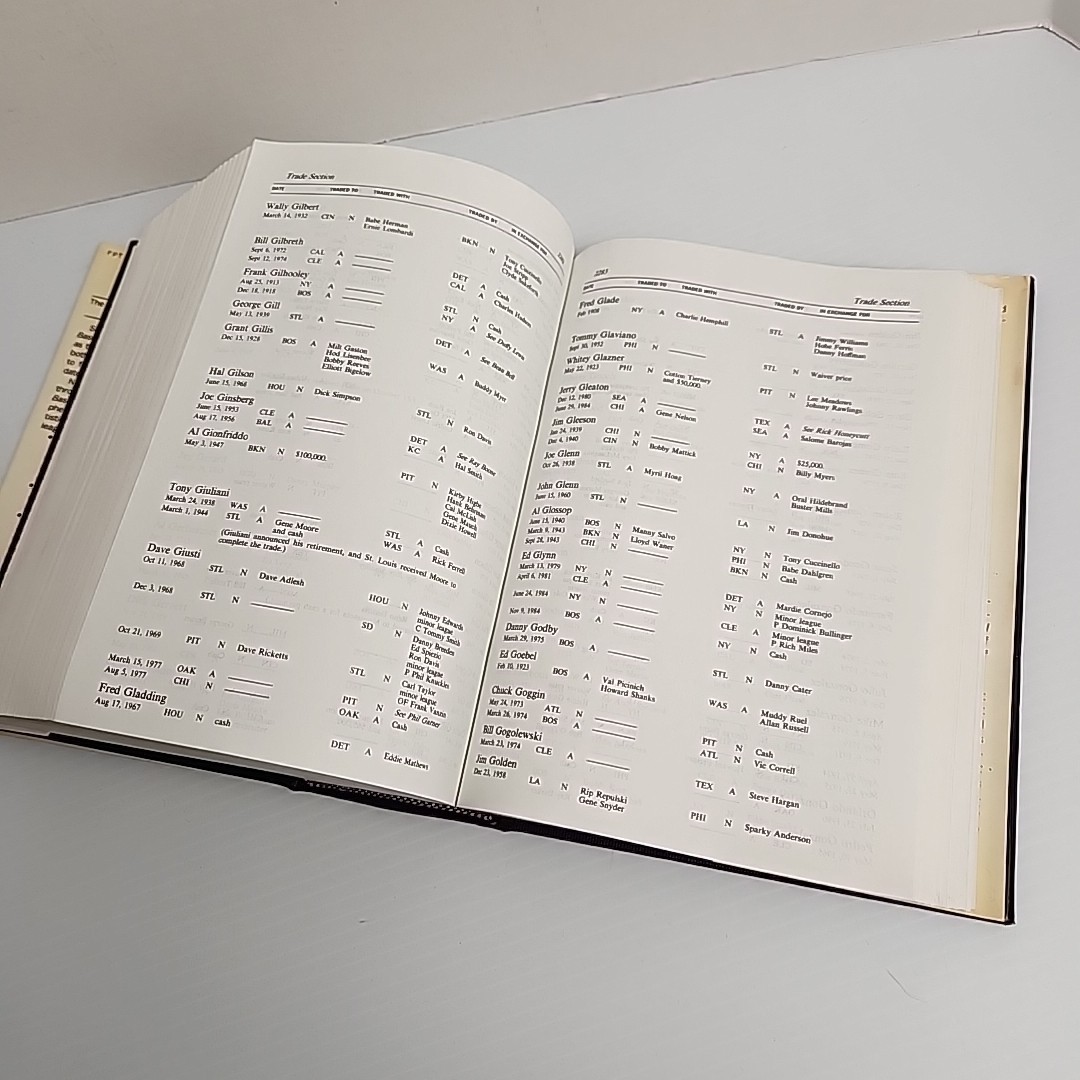 Trade Section
DATE TRADED TO TRADED WITH TRADED BY IN EXCHANGE FOR
Wally Gilbert
March 14, 1932 CIN N Babe Herman BKN N Tony Cuccinello
Ernie Lombardi Joe Stripp
Clyde Sukeforth
Bill Gilbreth
Sept 6, 1972 CAL A ____ DET A Cash
Sept 12, 1974 CLE A ____ CAL A Charlie Hudson
Frank Gilhooley
Aug 25, 1913 NY A ____ STL N Cash
Dec 18, 1918 BOS A ____ NY A See Duffy Lewis
George Gill
May 13, 1939 STL A ____ DET A See Beau Bell
Grant Gillis
Dec 15, 1928 BOS A Milt Gaston WAS A Buddy Myer
Hod Lisenbee
Bobby Reeves
Elliott Bigelow
Hal Gilson
June 15, 1968 HOU N Dick Simpson STL N Ron Davis
Joe Ginsberg
June 15, 1953 CLE A ____ DET A See Ray Boone
Aug 17, 1956 BAL A ____ KC A Hal Smith
Al Gionfriddo
May 3, 1947 BKN N $100,000. PIT N Kirby Higbe
Hank Behrman
Cal McLish
Gene Mauch
Dixie Howell
Tony Giuliani
March 24, 1938 WAS A ____ STL A Cash
March 1, 1944 STL A Gene Moore WAS A Rick Ferrell
and cash
(Giuliani announced his retirement, and St. Louis received Moore to
complete the trade.)
Dave Giusti
Oct 11, 1968 STL N Dave Adlesh HOU N Johnny Edwards
minor league
C Tommy Smith
Dec 3, 1968 STL N ____ SD N Danny Breeden
Ed Spiezio
Ron Davis
minor league
P Phil Knuckles
Oct 21, 1969 PIT N Dave Ricketts STL N Carl Taylor
minor league
OF Frank Vanzin
March 15, 1977 OAK A ____ PIT N See Phil Garner
Aug 5, 1977 CHI N ____ OAK A Cash
Fred Gladding
Aug 17, 1967 HOU N cash DET A Eddie Mathews
2283 Trade Section
DATE TRADED TO TRADED WITH TRADED BY IN EXCHANGE FOR
Fred Glade
Feb 1908 NY A Charlie Hemphill STL A Jimmy Williams
Hobe Ferris
Danny Hoffman
Tommy Glaviano
Sept 30, 1952 PHI N ____ STL N Waiver price
Whitey Glazner
May 22, 1923 PHI N Cotton Tierney PIT N Lee Meadows
and $50,000. Johnny Rawlings
Jerry Gleaton
Dec 12, 1980 SEA A ____ TEX A See Rick Honeycutt
June 29, 1984 CHI A Gene Nelson SEA A Salome Barojas
Jim Gleeson
Jan 24, 1939 CHI N ____ NY A $25,000.
Dec 4, 1940 CIN N Bobby Mattick CHI N Billy Myers
Joe Glenn
Oct 26, 1938 STL A Myril Hoag NY A Oral Hildebrand
Buster Mills
John Glenn
June 15, 1960 STL N ____ LA N Jim Donohue
Al Glossop
June 15, 1940 BOS N Manny Salvo NY N Tony Cuccinello
March 9, 1943 BKN N Lloyd Waner PHI N Babe Dahlgren
Sept 28, 1945 CHI N ____ BKN N Cash
Ed Glynn
March 13, 1979 NY N ____ DET A Mardie Cornejo
April 6, 1981 CLE A ____ NY N Minor league
P Dominick Bullinger
June 24, 1984 NY N ____ CLE A Minor league
P Rich Miles
Nov 9, 1984 BOS A ____ NY N Cash
Danny Godby
March 29, 1975 BOS A ____ STL N Danny Cater
Ed Goebel
Feb 10, 1923 BOS A Val Picinich WAS A Muddy Ruel
Howard Shanks Allan Russell
Chuck Goggin
May 24, 1973 ATL N ____ PIT N Cash
March 26, 1974 BOS A ____ ATL N Vic Correll
Bill Gogolewski
March 23, 1974 CLE A ____ TEX A Steve Hargan
Jim Golden
Dec 23, 1958 LA N Rip Repulski PHI N Sparky Anderson
Gene Snyder